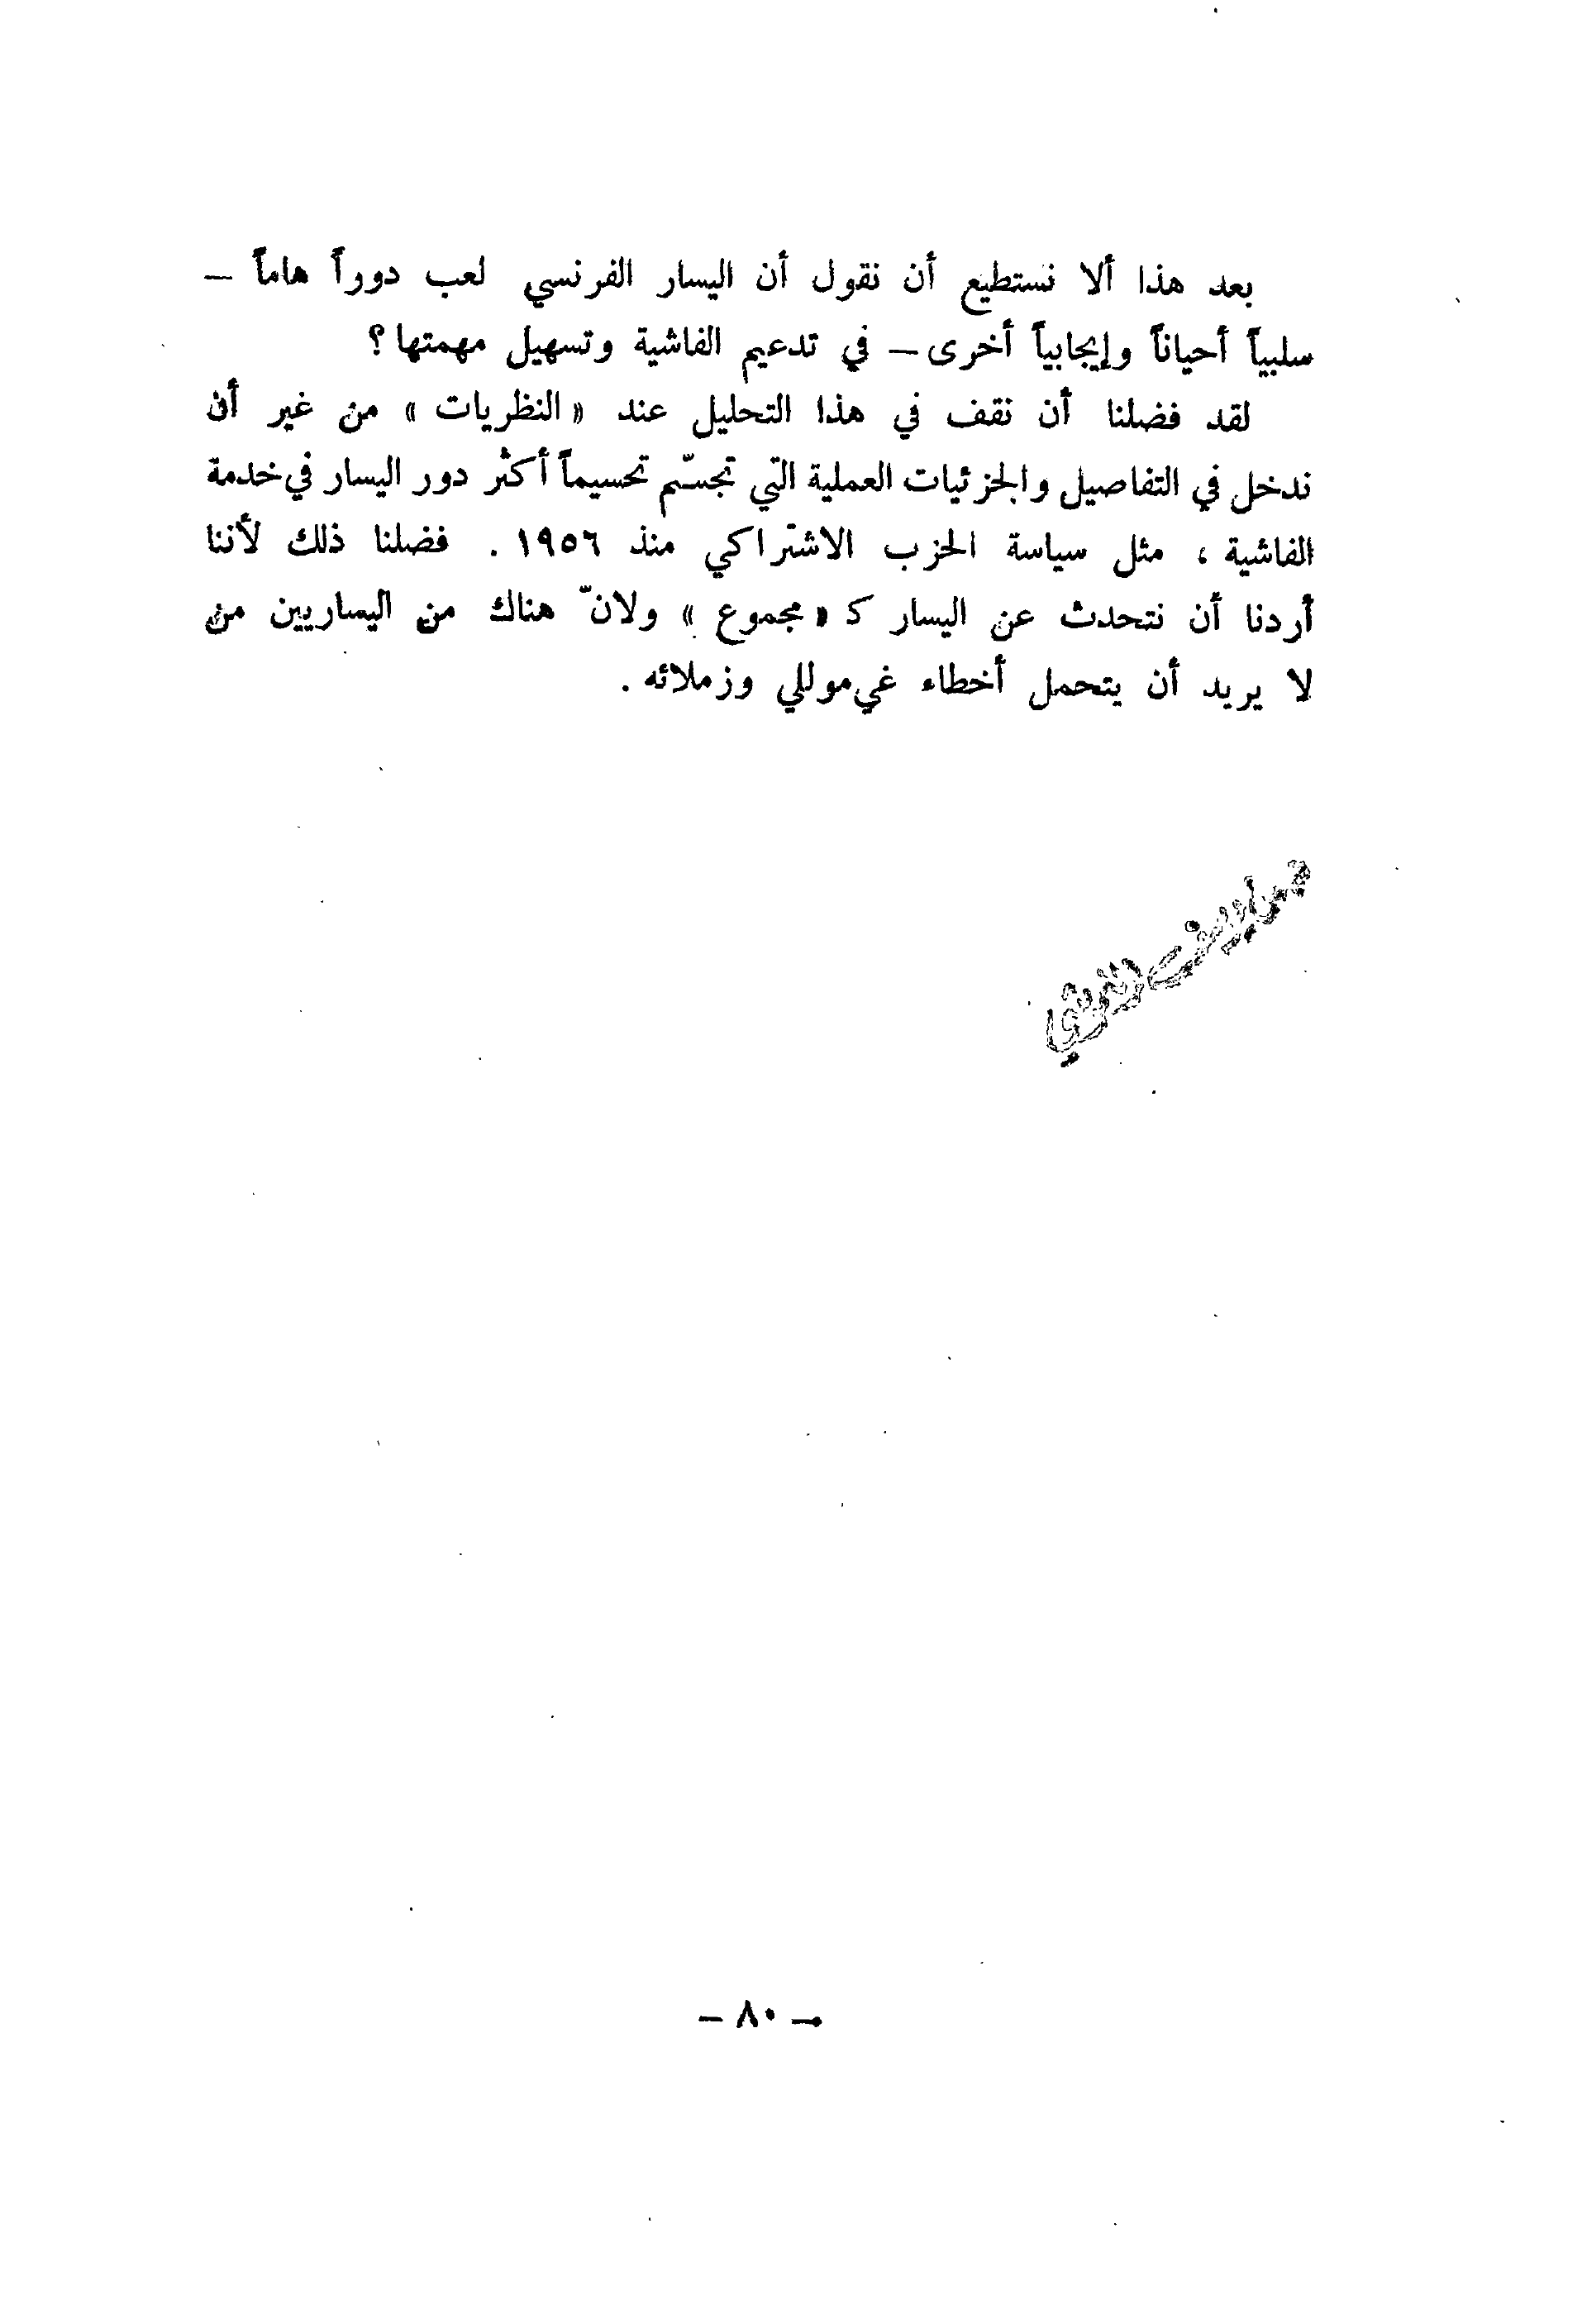 بعد هذا ألا نستطيع أن نقول أن اليسار الفرنسي لعب دوراً هاماً –
سلبياً أحياناً وإيجابياً أخرى – في تدعيم الفاشية وتسهيل مهمتها ؟
لقد فضلنا أن نقف في هذا التحليل عند « النظريات » من غير أن
ندخل في التفاصيل والجزئيات العملية التي تجسّم تحسيماً أكثر دور اليسار في خدمة
الفاشية ، مثل سياسة الحزب الاشتراكي منذ ١٩٥٦ . فضلنا ذلك لأننا
أردنا أن نتحدث عن اليسار كـ « مجموع » ولانّ هناك من اليساريين من
لا يريد أن يتحمل أخطاء غي موللي وزملائه .
– ٨٠ –